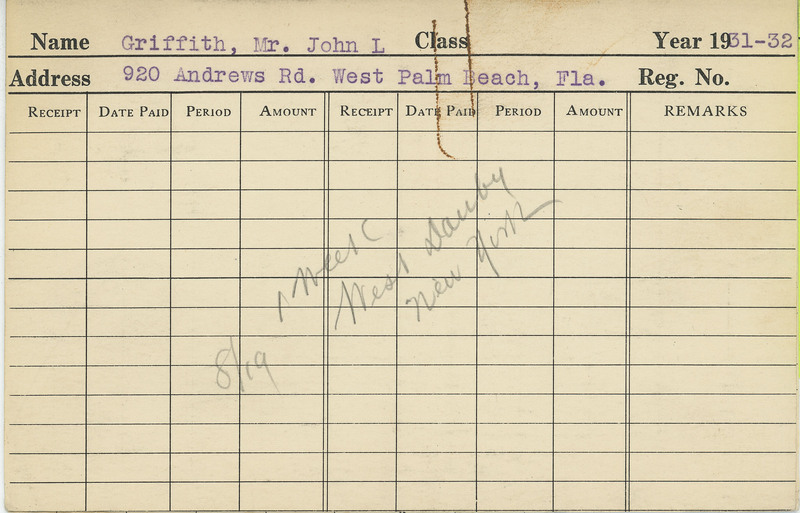 Name Griffith, Mr. John L Class Year 1931-32
Address 920 Andrews Rd. West Palm Beach, Fla. Reg. No.
RECEIPT DATE PAID PERIOD AMOUNT RECEIPT DATE PAID PERIOD AMOUNT REMARKS
1 Week
West Danby
New York
8/19